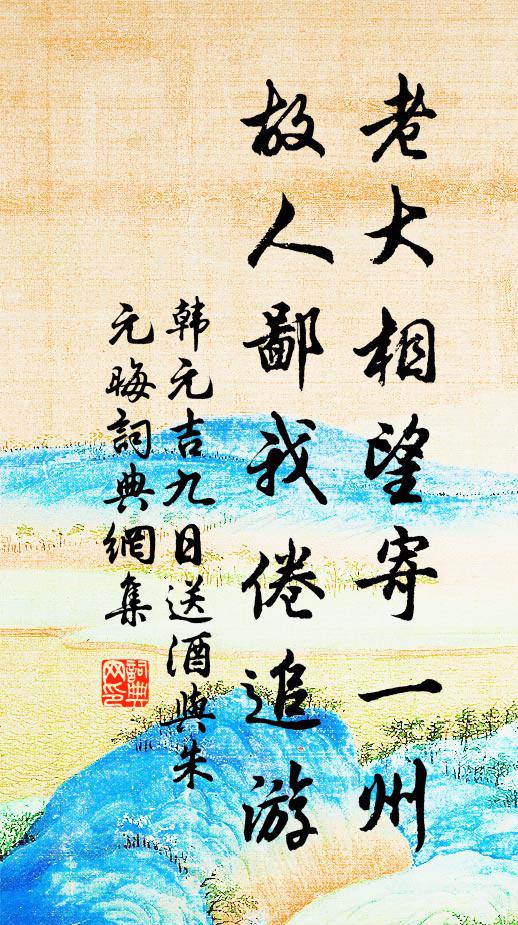 老大相望寄一州
故人鄙我倦追游
韩元吉九日送酒與朱
元晦詞典網集
詞典
网印